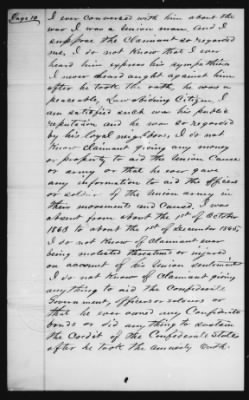 Page 10
I ever conversed with him about the
war I was a Union man and I
suppose the claimant so regarded
me, I do not know that I ever
heard him express his sympathies
I never heard aught against him
after he took the oath he was a
peaceable, Law abiding Citizen, I
am satisfied such was his public
reputation and he was so regarded
by his loyal neighbors, I do not
know claimant giving any money
or property to aid the Union Cause
or army or that he ever gave
any information to aid the officers
or soldiers of the Union army in
their movements and Caused, I was
absent from about the 1st of October
1863 to about the 1st of December 1865,
I do not know of claimant ever
being molested threatened or injured
on account of his Union Sentiments
I do not know of Claimant giving
anything to aid the Confederate
Government, officers or soldiers or
that he ever owned any Confederate
bonds or did anything to sustain
the Credit of the Confederate States
after he took the amnesty Oath.